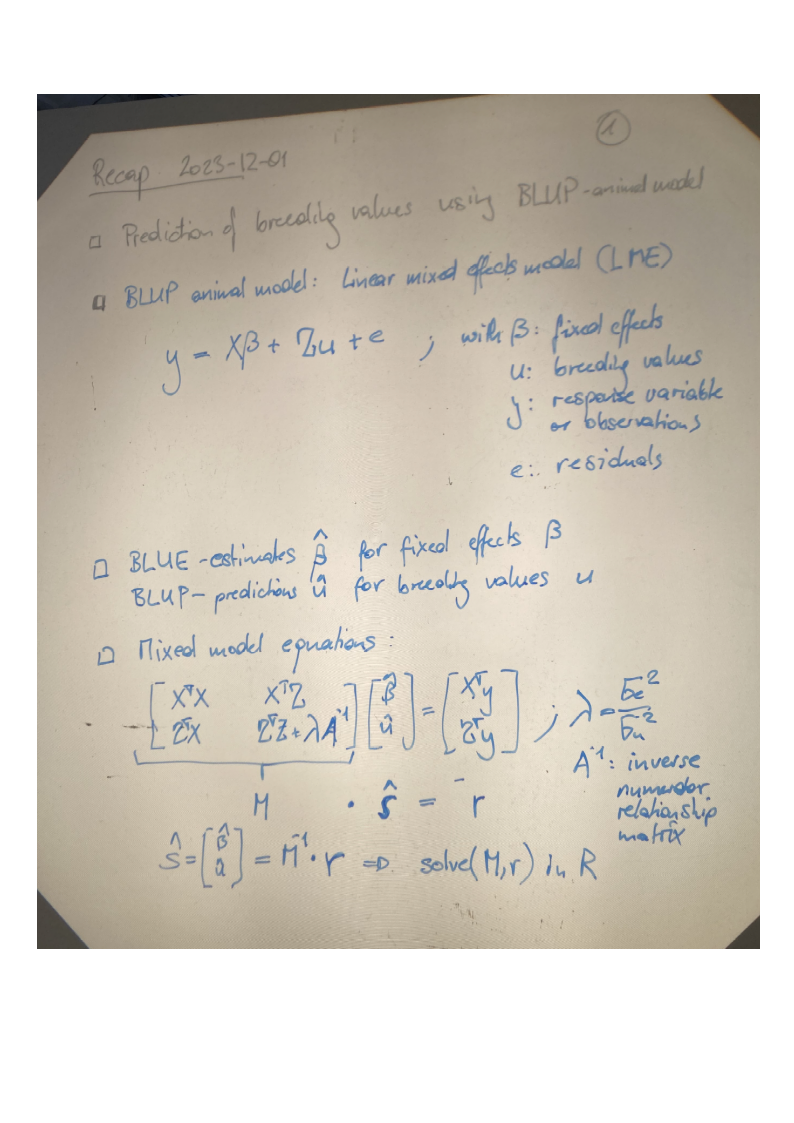 ①
Recap 2023-12-01
□ Prediction of breeding values using BLUP-animal model
□ BLUP animal model: Linear mixed effects model (LME)
y = Xβ + Zu + e ; with β: fixed effects
u: breeding values
y: response variable
or observations
e: residuals
□ BLUE-estimates β̂ for fixed effects β
BLUP-predictions û for breeding values u
□ Mixed model equations:
[XᵀX XᵀZ; ZᵀX ZᵀZ+λA⁻¹] [β̂; û] = [Xᵀy; Zᵀy] ; λ = σe²/σu²
A⁻¹: inverse
numerator
relationship
matrix
M · ŝ = r
ŝ = [β̂; û] = M⁻¹ · r ⇒ solve(M,r) in R